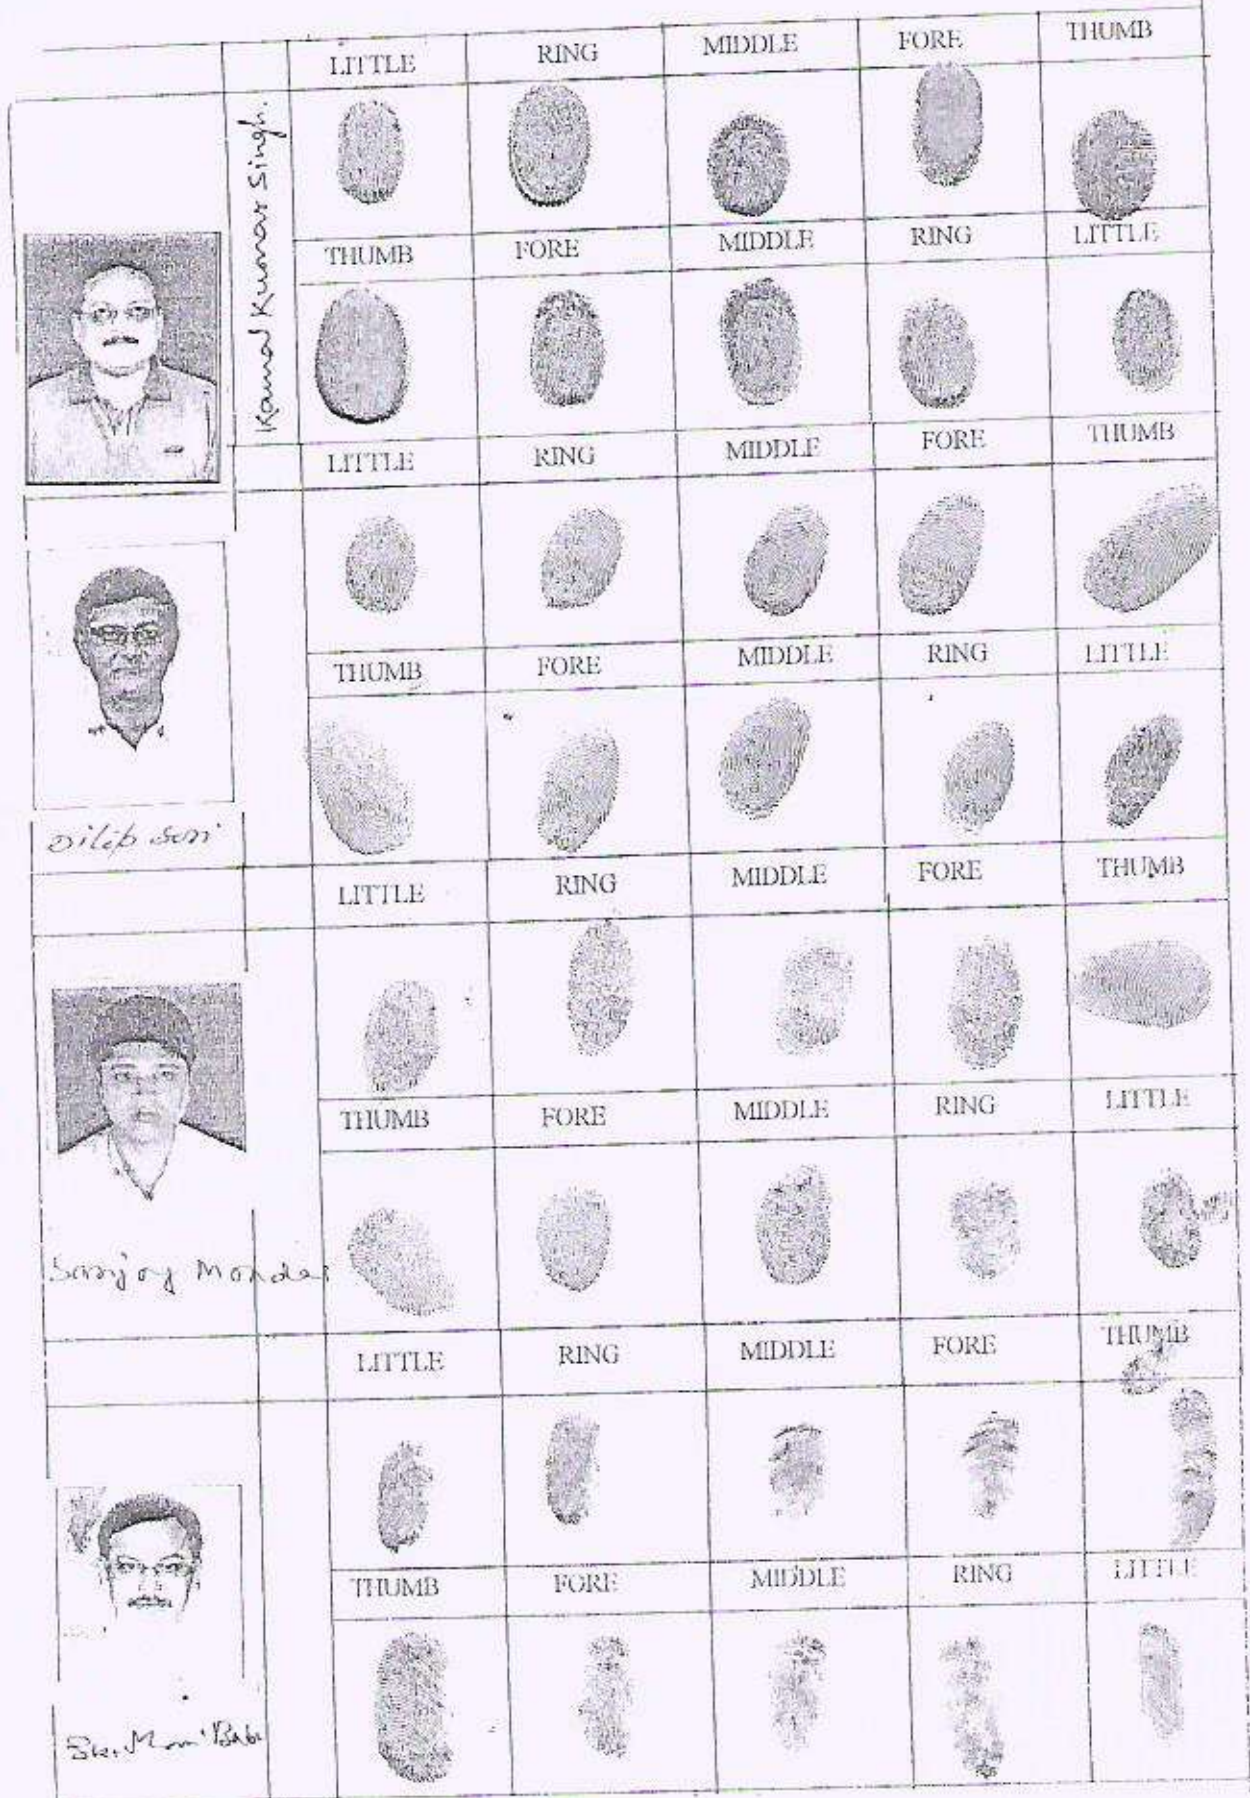 LITTLE RING MIDDLE FORE THUMB
Kamal Kumar Singh.
THUMB FORE MIDDLE RING LITTLE
LITTLE RING MIDDLE FORE THUMB
THUMB FORE MIDDLE RING LITTLE
Dilip
LITTLE RING MIDDLE FORE THUMB
THUMB FORE MIDDLE RING LITTLE
Sanjoy Mondal
LITTLE RING MIDDLE FORE THUMB
THUMB FORE MIDDLE RING LITTLE
Sk. Moni Babu